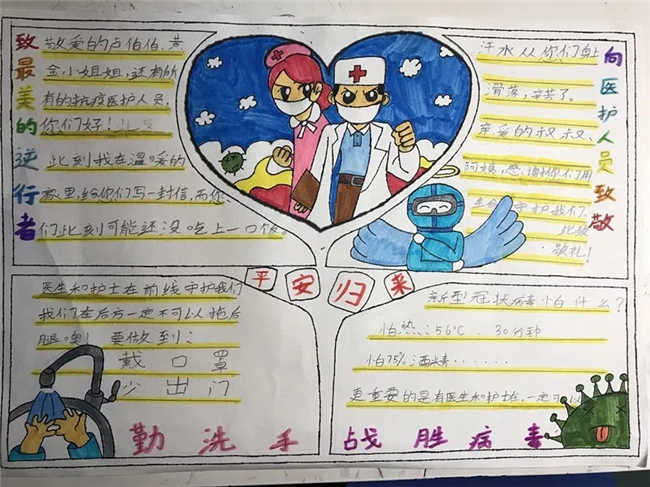 致最美的逆行者
敬爱的卢伯伯、黄
金小姐姐,还有所
有的抗疫医护人员,
你们好!
此刻我在温暖的
家里给你们写一封信,而你
们此刻可能还没吃上一口饭。
汗水从你们身上
滑落,辛苦了。
亲爱的叔叔、
阿姨,感谢你们用
生命守护我们。
此致
敬礼!
向医护人员致敬
平安归来
医生和护士在前线守护我们
我们在后方一定不可以拖后
腿哦! 要做到:
戴口罩
少出门
勤洗手
新型冠状病毒怕什么?
怕热:56℃ 30分钟
怕75%酒精······
更重要的是有医生和护士在,一定可以
战胜病毒